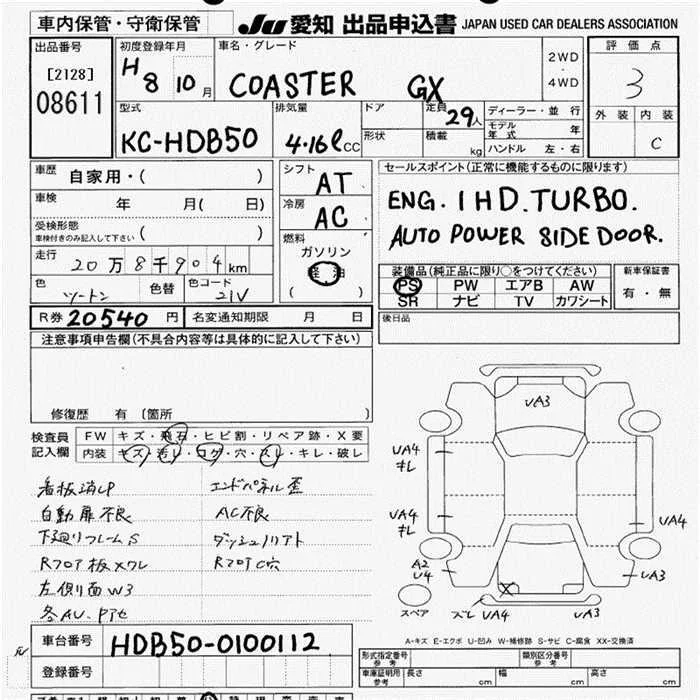 車内保管・守衛保管 JU 愛知 出品申込書 JAPAN USED CAR DEALERS ASSOCIATION
出品番号
[2128]
08611
初度登録年月
H 8 10 月
車名・グレード
COASTER GX
2WD
・
4WD
評価点
3
外装 内装
C
型式
KC-HDB50
排気量
4.16ℓCC
ドア
形状
定員 29人
積載 kg
ディーラー・並行
モデル年式 年
ハンドル 左・右
車歴 自家用・( )
車検 年 月( 日)
受検形態
車検付きのみ記入して下さい ( )
走行 20万8千904km
色 ツートン 色替 色コード 21V
シフト AT
冷房 AC
燃料
ガソリン
軽油
( )
セールスポイント(正常に機能するものに限ります)
ENG. 1HD.TURBO.
AUTO POWER SIDE DOOR.
装備品(純正品に限り○をつけてください)
PS PW エアB AW
SR ナビ TV カワシート
新車保証書
有・無
R券 20540 円 名変通知期限 月 日
後日品
注意事項申告欄(不具合内容等は具体的に記入して下さい)
修復歴 有 〔箇所 〕
検査員記入欄
FW キズ・飛石・ヒビ割・リペア跡・X要
内装 キズ・汚レ・コゲ・穴・スレ・キレ・破レ
看板消しP エンドパネル歪
自動扉不良 AC不良
下廻りフレームS ダッシュノリアト
Rフロア板Xワレ RフロアC穴
左側面W3
各AU、Pアセ
UA3
UA4
キレ
UA4
キレ
UA4
A2
U4
UA3
X
スペア
ズレ UA4 UA3
A-キズ E-エクボ U-凹み W-補修跡 S-サビ C-腐食 XX-交換済
車台番号 HDB50-0100112
登録番号
形式指定番号
参考
類別区分番号
参考
車庫証明用
参考
長さ cm 幅 cm 高さ cm